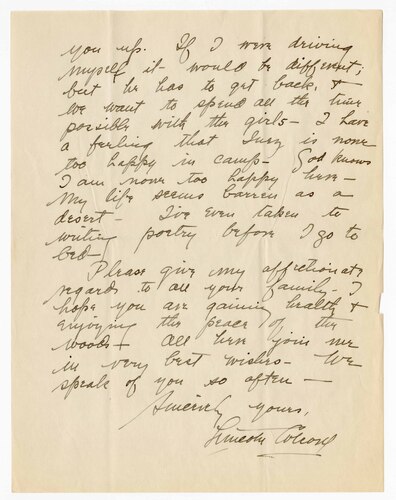 you up. If I were driving
myself it would be different;
but he has to get back, &
we want to spend all the time
possible with the girls – I have
a feeling that Inez is none
too happy in camp – God knows
I am none too happy here –
My life seems barren as a
desert – I've even taken to
writing poetry before I go to
bed.
Please give my affectionate
regards to all your family – I
hope you are gaining health &
enjoying the peace of the
woods – All here join me
in very best wishes – We
speak of you so often –
Sincerely yours,
Lincoln Colcord